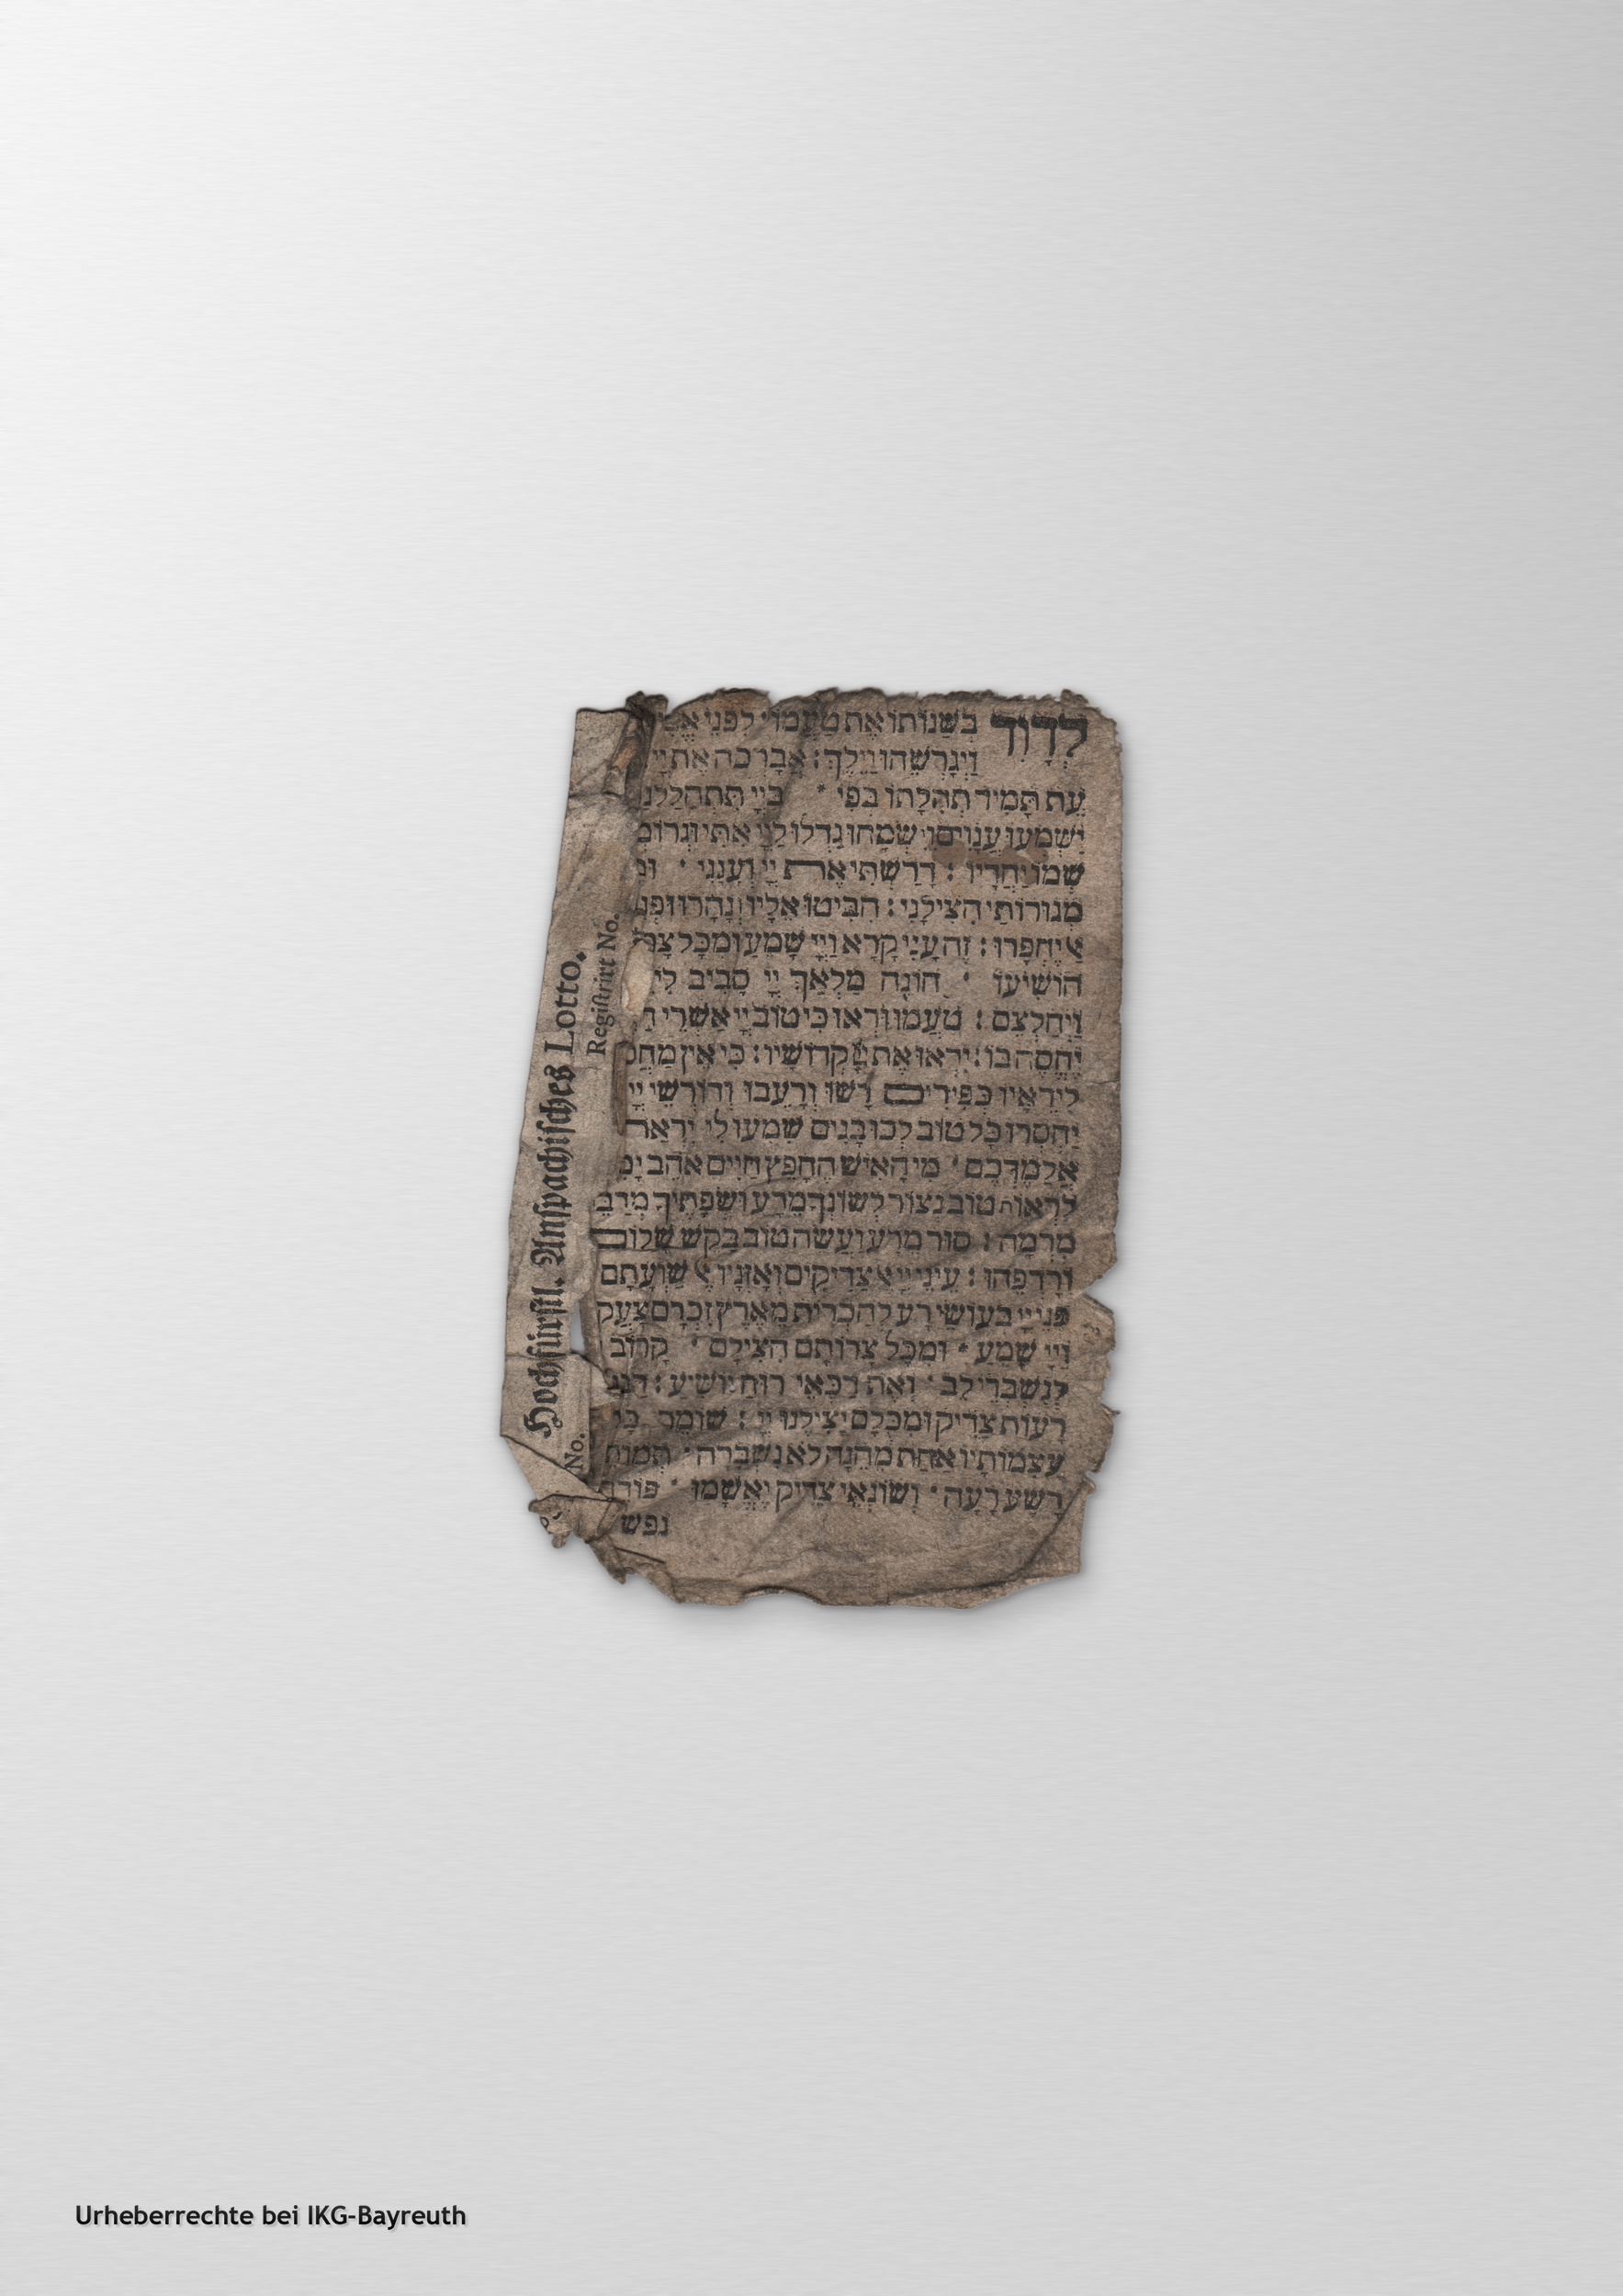 לְדָוִד בְּשַׁנּוֹתוֹ אֶת טַעְמוֹ לִפְנֵי
וַיְגָרְשֵׁהוּ וַיֵּלַךְ: אֲבָרְכָה אֶת יְיָ
עֵת תָּמִיד תְּהִלָּתוֹ בְּפִי * בַּיְיָ תִּתְהַלֵּל
יִשְׁמְעוּ עֲנָוִים וְיִשְׂמָחוּ גַּדְּלוּ לַיְיָ אִתִּי וּנְרוֹמְ
שְׁמוֹ יַחְדָּיו: דָּרַשְׁתִּי אֶת יְיָ וְעָנָנִי ·
מְגוּרוֹתַי הִצִּילָנִי: הִבִּיטוּ אֵלָיו וְנָהָרוּ וּפְנֵ
אַל יֶחְפָּרוּ: זֶה עָנִי קָרָא וַיְיָ שָׁמֵעַ וּמִכָּל
הוֹשִׁיעוֹ · חוֹנֶה מַלְאַךְ יְיָ סָבִיב
וַיְחַלְּצֵם: טַעֲמוּ וּרְאוּ כִּי טוֹב יְיָ אַשְׁרֵי
יֶחֱסֶה בּוֹ: יְראוּ אֶת יְיָ קְדוֹשָׁיו: כִּי אֵין מַחְ
לִירֵאָיו כְּפִירִים רָשׁוּ וְרָעֵבוּ וְדוֹרְשֵׁי יְיָ
יַחְסְרוּ כָל טוֹב לְכוּ בָנִים שִׁמְעוּ לִי יִרְאַת
אֲלַמֶּדְכֶם · מִי הָאִישׁ הֶחָפֵץ חַיִּים אֹהֵב יָמִ
לִרְאוֹת טוֹב נְצוֹר לְשׁוֹנְךָ מֵרָע וּשְׂפָתֶיךָ מִדַּבֵּ
מִרְמָה: סוּר מֵרָע וַעֲשֵׂה טוֹב בַּקֵּשׁ שָׁלוֹם
וְרָדְפֵהוּ: עֵינֵי יְיָ אֶל צַדִּיקִים וְאָזְנָיו אֶל שַׁוְעָתָם
פְּנֵי יְיָ בְּעוֹשֵׂי רָע לְהַכְרִית מֵאֶרֶץ זִכְרָם צָעֲק
וַיְיָ שָׁמֵעַ · וּמִכָּל צָרוֹתָם הִצִּילָם · קָרוֹב
לְנִשְׁבְּרֵי לֵב · וְאֶת דַּכְּאֵי רוּחַ יוֹשִׁיעַ:
רָעוֹת צַדִּיק וּמִכֻּלָּם יַצִּילֶנּוּ יְיָ: שׁוֹמֵר כָּל
עַצְמוֹתָיו אַחַת מֵהֵנָּה לֹא נִשְׁבָּרָה · תְּמוֹתֵ
רָשָׁע רָעָה · וְשׂוֹנְאֵי צַדִּיק יֶאְשָׁמוּ · פּוֹדֶה
נפש
Hochfürstl. Anspachisches Lotto.
No. Registrirt No.
Urheberrechte bei IKG-Bayreuth